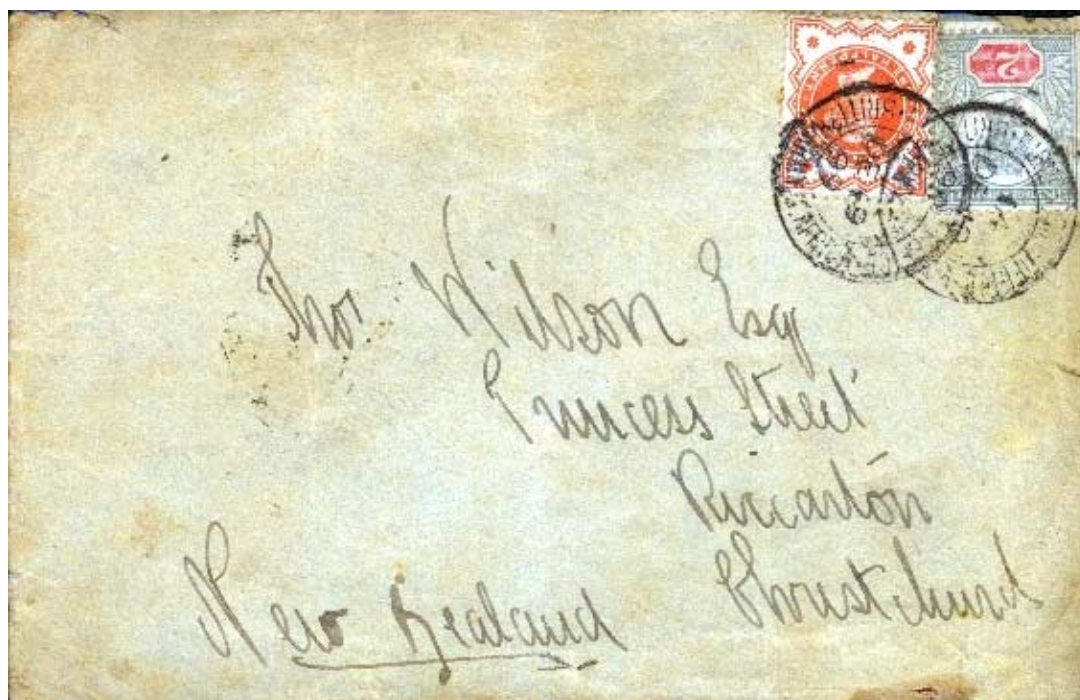 2d
Thos Wilson Esq
Princess Street
Riccarton
Christchurch
New Zealand